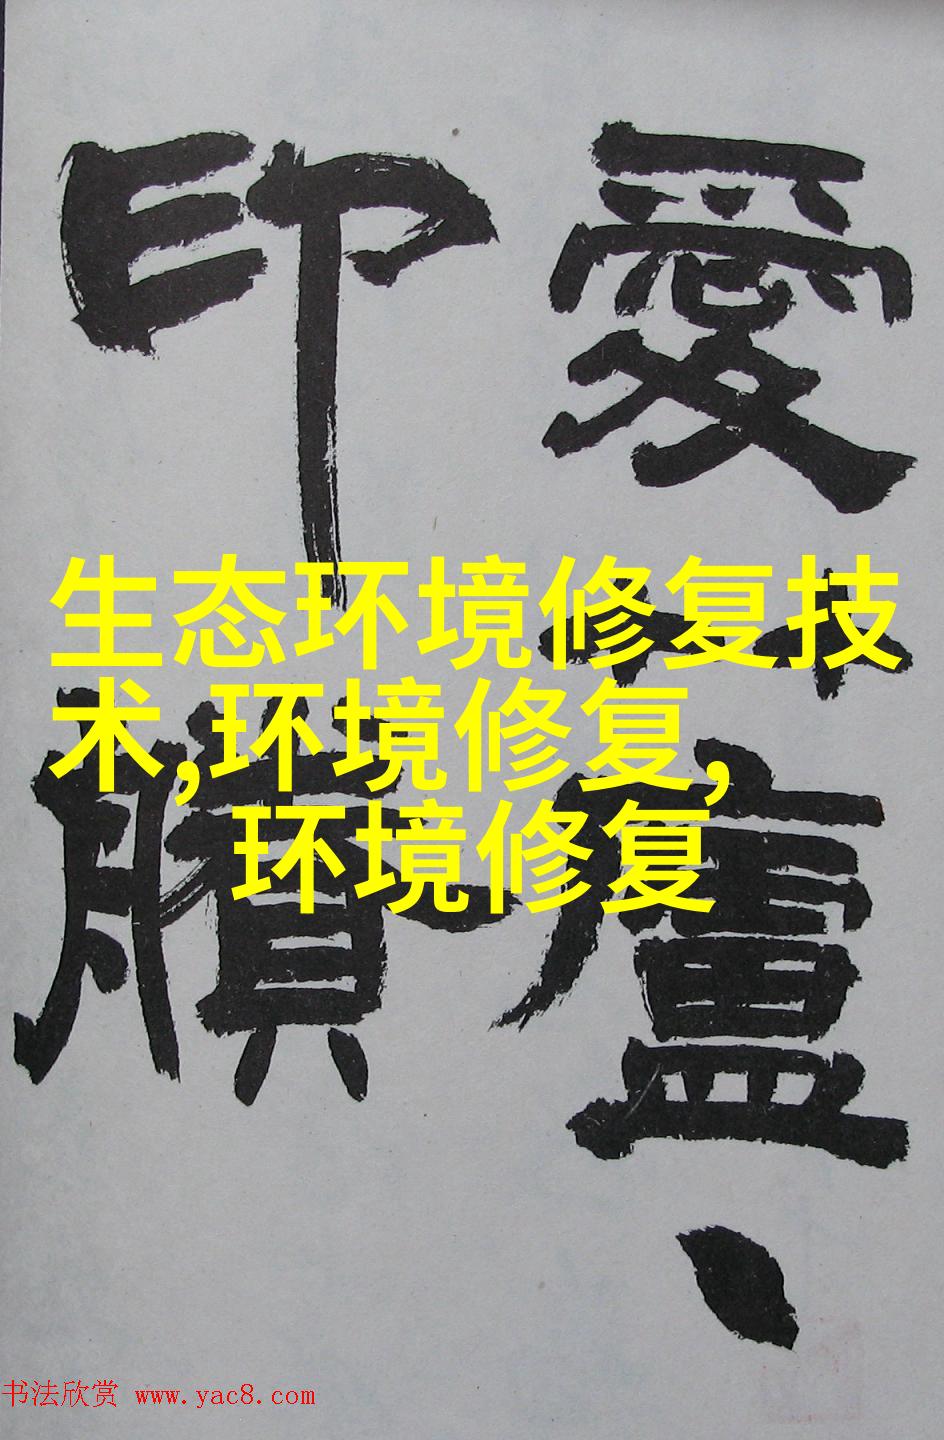 愛蘆
印賸
生态环境修复技
术,环境修复,
环境修复
书法欣赏 www.yac8.com